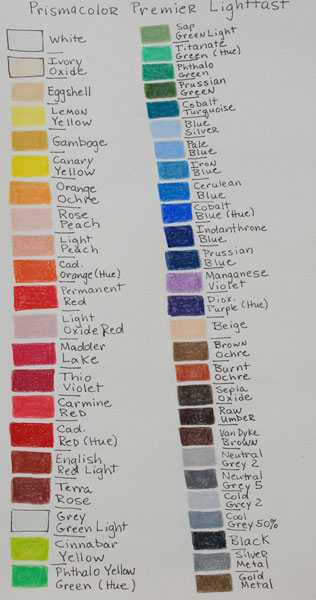 Prismacolor Premier Lightfast
White
Ivory
Oxide
Eggshell
Lemon
Yellow
Gamboge
Canary
Yellow
Orange
Ochre
Rose
Peach
Light
Peach
Cad.
Orange (Hue)
Permanent
Red
Light
Oxide Red
Madder
Lake
Thio
Violet
Carmine
Red
Cad.
Red (Hue)
English
Red Light
Terra
Rose
Grey
Green Light
Cinnabar
Yellow
Phthalo Yellow
Green (Hue)
Sap
Green Light
Titanate
Green (Hue)
Phthalo
Green
Prussian
Green
Cobalt
Turquoise
Blue
Silver
Pale
Blue
Iron
Blue
Cerulean
Blue
Cobalt
Blue (Hue)
Indanthrone
Blue
Prussian
Blue
Manganese
Violet
Diox.
Purple (Hue)
Beige
Brown
Ochre
Burnt
Ochre
Sepia
Oxide
Raw
Umber
Van Dyke
Brown
Neutral
Grey 2
Neutral
Grey 5
Cold
Grey 2
Cool
Grey 50%
Black
Silver
Metal
Gold
Metal